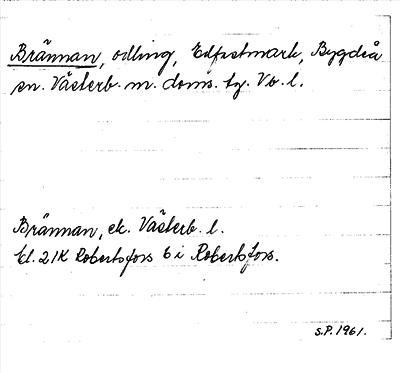 Brännan, odling, Edfastmark, Bygdeå
sn. Västerb. m. doms. tg. Vb. l.
Brännan, ek. Västerb. l.
bl. 21K Robertsfors 6 i Robertsfors.
S.P. 1961.